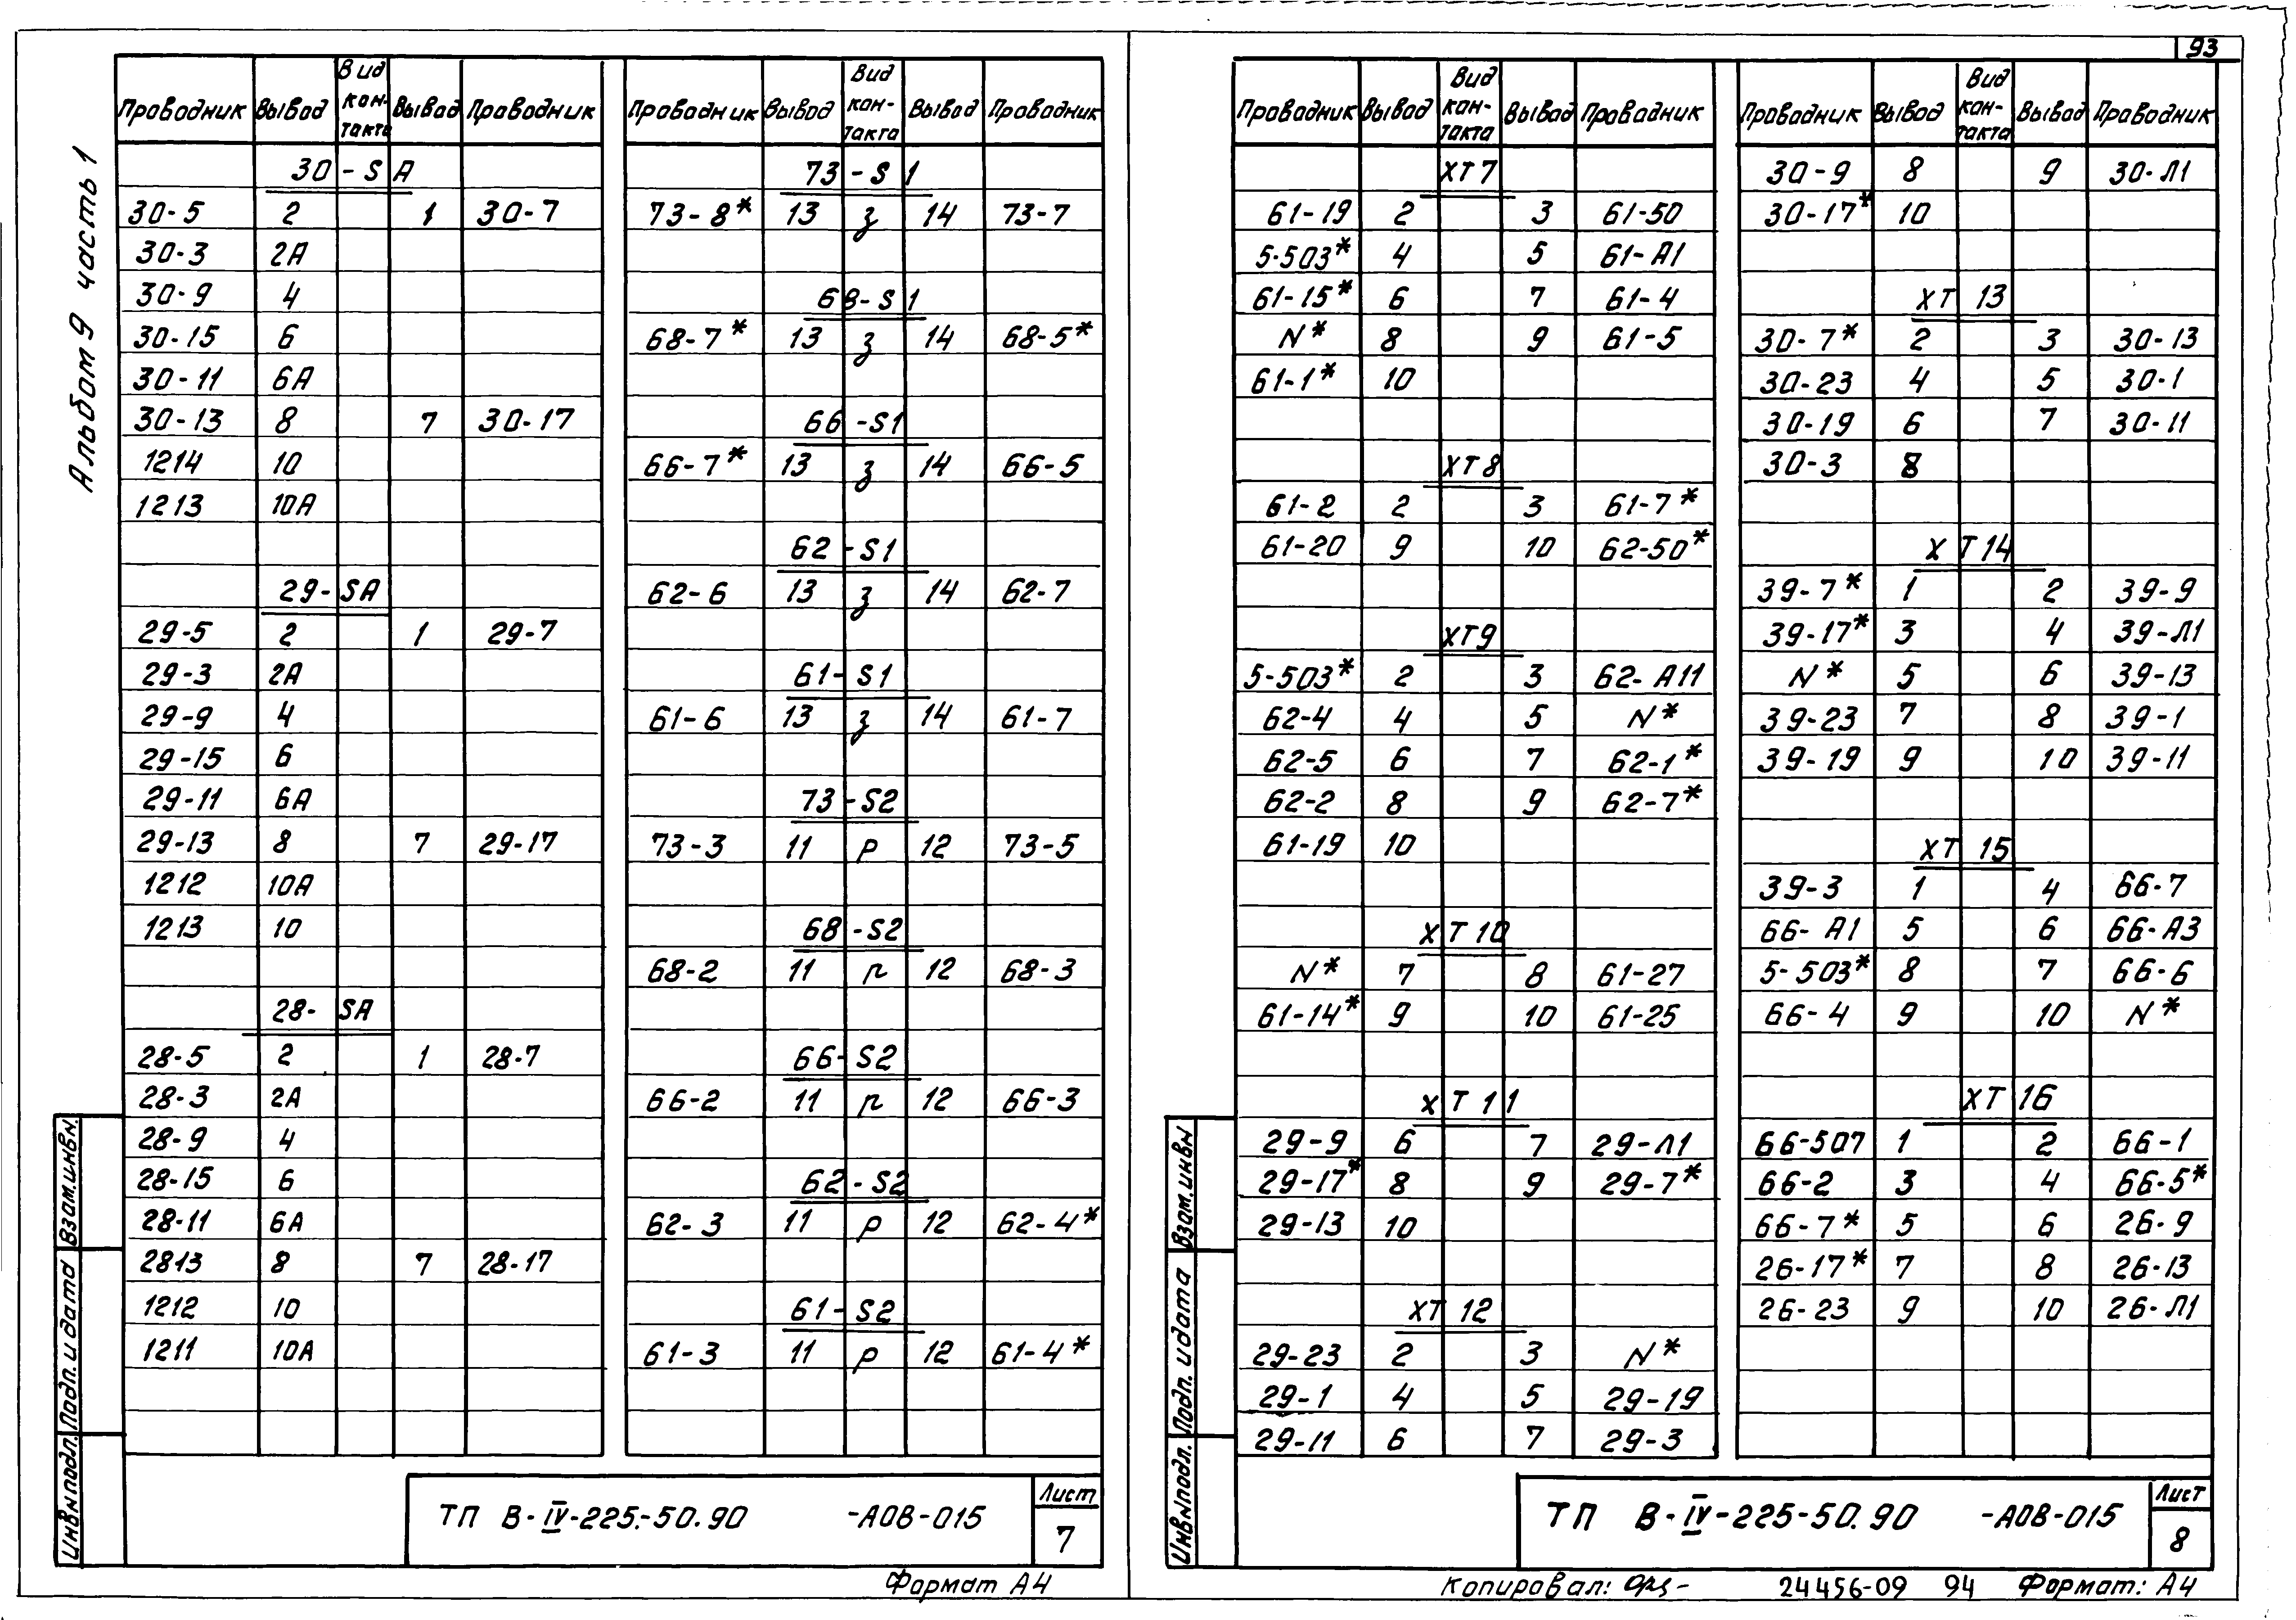 93
Альбом 9 часть 1
Проводник Вывод Вид кон-такта Вывод Проводник
30-SA
30-5 2 1 30-7
30-3 2А
30-9 4
30-15 6
30-11 6А
30-13 8 7 30-17
1214 10
1213 10А
29-SA
29-5 2 1 29-7
29-3 2А
29-9 4
29-15 6
29-11 6А
29-13 8 7 29-17
1212 10А
1213 10
28-SA
28-5 2 1 28-7
28-3 2А
28-9 4
28-15 6
28-11 6А
2813 8 7 28-17
1212 10
1211 10А
Проводник Вывод Вид кон-такта Вывод Проводник
73-S1
73-8* 13 з 14 73-7
68-S1
68-7* 13 з 14 68-5*
66-S1
66-7* 13 з 14 66-5
62-S1
62-6 13 з 14 62-7
61-S1
61-6 13 з 14 61-7
73-S2
73-3 11 р 12 73-5
68-S2
68-2 11 р 12 68-3
66-S2
66-2 11 р 12 66-3
62-S2
62-3 11 р 12 62-4*
61-S2
61-3 11 р 12 61-4*
Инв№подл. Подп. и дата Взам.инв№
ТП В-IV-225-50.90 -АОВ-015
Лист
7
Формат А4
Проводник Вывод Вид кон-такта Вывод Проводник
ХТ7
61-19 2 3 61-50
5-503* 4 5 61-А1
61-15* 6 7 61-4
N* 8 9 61-5
61-1* 10
ХТ8
61-2 2 3 61-7*
61-20 9 10 62-50*
ХТ9
5-503* 2 3 62-А11
62-4 4 5 N*
62-5 6 7 62-1*
62-2 8 9 62-7*
61-19 10
ХТ10
N* 7 8 61-27
61-14* 9 10 61-25
ХТ11
29-9 6 7 29-Л1
29-17* 8 9 29-7*
29-13 10
ХТ12
29-23 2 3 N*
29-1 4 5 29-19
29-11 6 7 29-3
Проводник Вывод Вид кон-такта Вывод Проводник
30-9 8 9 30-Л1
30-17* 10
ХТ13
30-7* 2 3 30-13
30-23 4 5 30-1
30-19 6 7 30-11
30-3 8
ХТ14
39-7* 1 2 39-9
39-17* 3 4 39-Л1
N* 5 6 39-13
39-23 7 8 39-1
39-19 9 10 39-11
ХТ15
39-3 1 4 66-7
66-А1 5 6 66-А3
5-503* 8 7 66-6
66-4 9 10 N*
ХТ16
66-507 1 2 66-1
66-2 3 4 66-5*
66-7* 5 6 26-9
26-17* 7 8 26-13
26-23 9 10 26-Л1
Инв№подл. Подп. и дата Взам.инв№
ТП В-IV-225-50.90 -АОВ-015
Лист
8
Копировал: 24456-09 94 Формат: А4